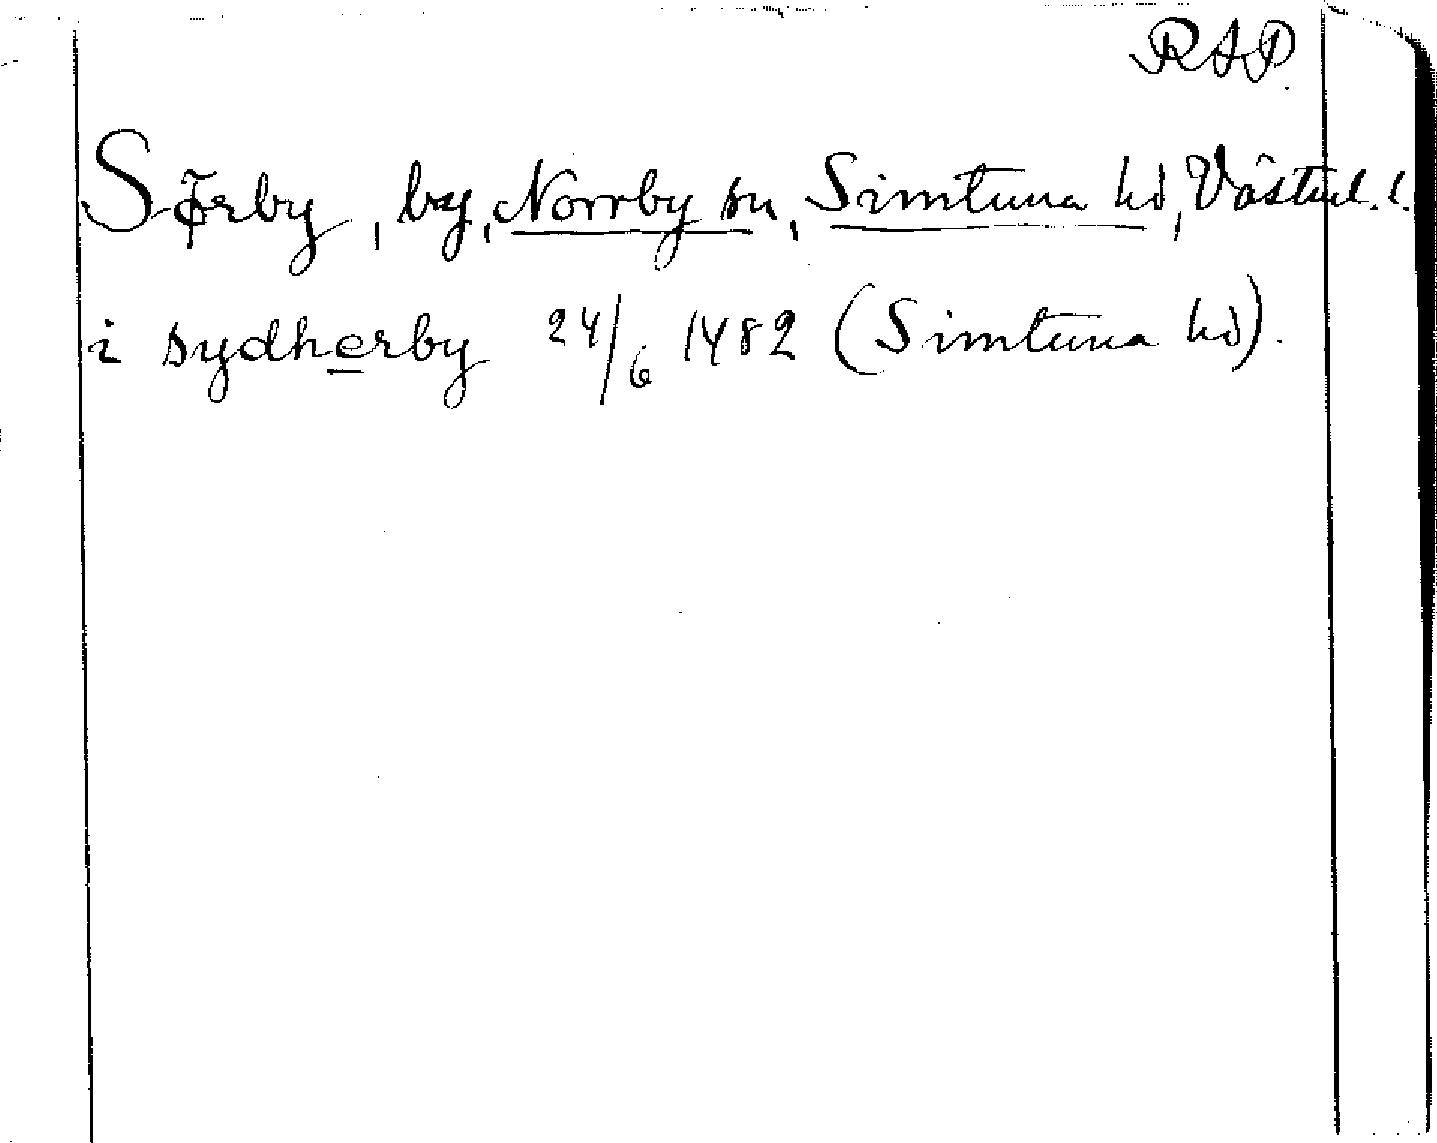 RAP
Sörby, by, Norrby sn, Simtuna hd, Västml. l.
i sydherby 24/6 1482 (Simtuna hd).